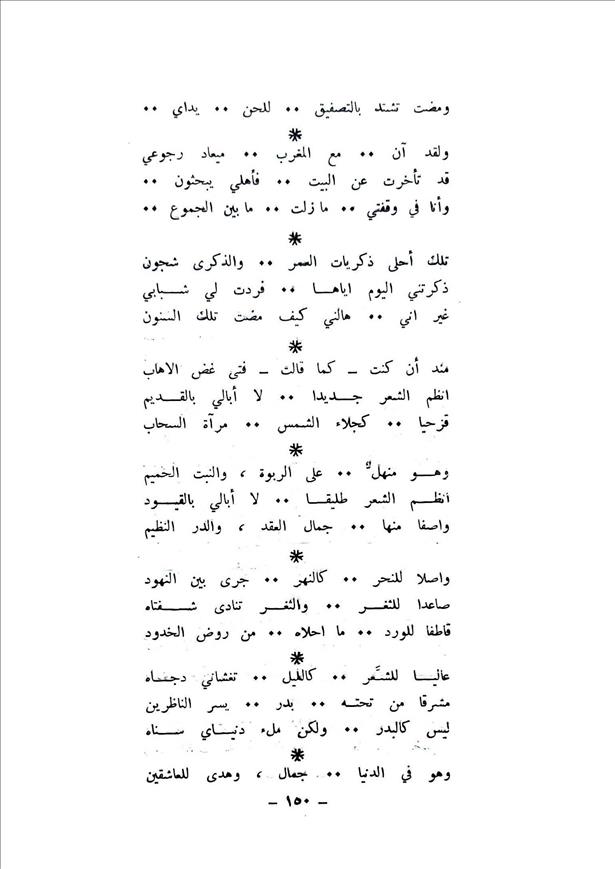 ومضت تشتد بالتصفيق ٠٠ للحن ٠٠ يداي ٠٠
*
ولقد آن ٠٠ مع المغرب ٠٠ ميعاد رجوعي
قد تأخرت عن البيت ٠٠ فأهلي يبحثون ٠٠
وأنا في وقفتي ٠٠ ما زلت ٠٠ ما بين الجموع ٠٠
*
تلك أحلى ذكريات العمر ٠٠ والذكرى شجون
ذكرتني اليوم اياهـا ٠٠ فردت لي شـبابي
غير اني ٠٠ هالني كيف مضت تلك السنون
*
منذ أن كنت ـ كما قالت ـ فتى غض الاهاب
انظم الشعر جـديدا ٠٠ لا أبالي بالقديم
قزحيا ٠٠ كجلاء الشمس ٠٠ مرآة السحاب
*
وهـو منهلٌ ٠٠ على الربوة ، والنبت الحميم
انظـم الشعر طليقـا ٠٠ لا أبالي بالقيـود
واصفا منها ٠٠ جمال العقد ، والدر النظيم
*
واصلا للنحر ٠٠ كالنهر ٠٠ جرى بين النهود
صاعدا للثغـر ٠٠ والثغـر تنادى شـفتاه
قاطفا للورد ٠٠ ما احلاه ٠٠ من روض الخدود
*
عاليـا للشَّعر ٠٠ كالليل ٠٠ تغشاني دجـاه
مشرقا من تحتـه ٠٠ بدر ٠٠ يسر الناظرين
ليس كالبدر ٠٠ ولكن ملء دنيـاي سـناه
*
وهو في الدنيا ٠٠ جمال ، وهدى للعاشقين
ـ ١٥٠ ـ